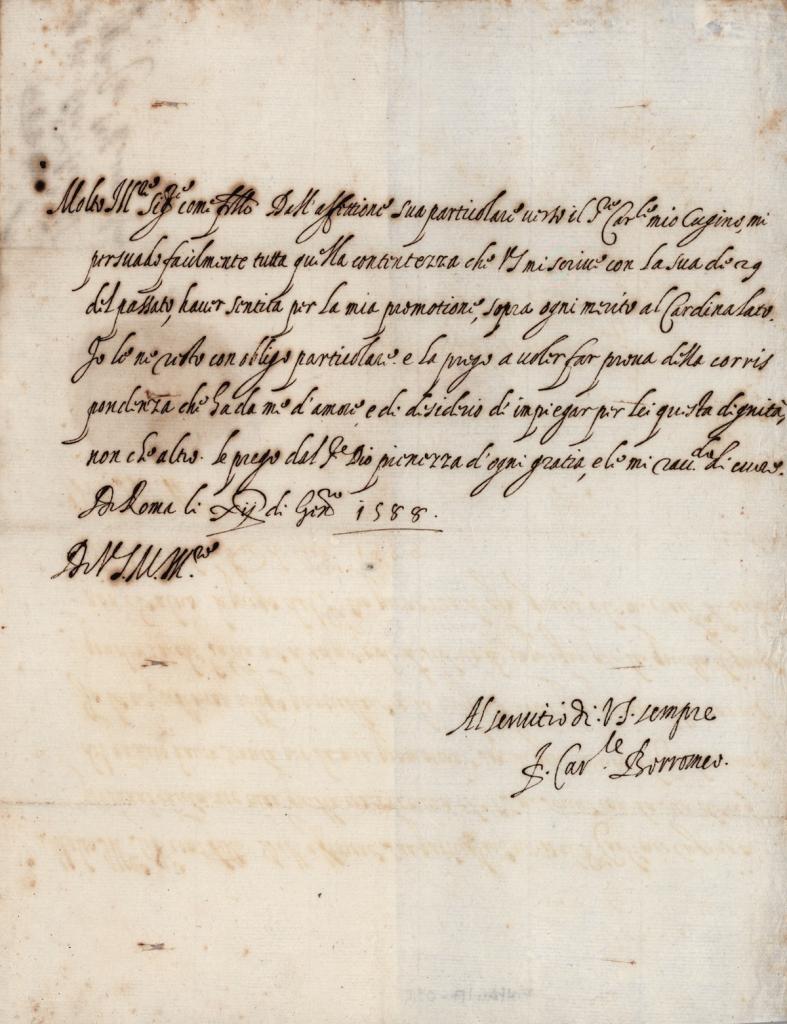 Molto M.co Sig.re come f.llo Dall'affettione sua particolare verso il S.re Car.le mio Cugino, mi
persuado facilmente tutta quella contentezza che VS mi scrive con la sua de 29
del passato, haver sentita per la mia promotione, sopra ogni merito al Cardinalato.
Io le ne resto con obligo particolare. e la prego a voler far prova della corris
pondenza che ha da me d'amore, e di desiderio di impiegar per lei questa dignità,
non che altro. le prego dal S.re Dio pienezza d'ogni gratia, e le mi racc.do di cuore.
Di Roma li xij di Gen.ro 1588.
Di V.S. M. M.co
Al servitio di V.S. sempre
F. Car.le Borromeo.